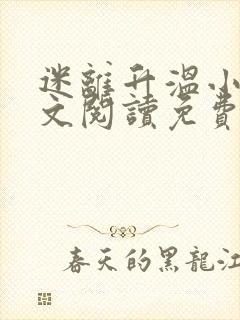 迷離升溫小
文閱讀免費
春天的黑龍江